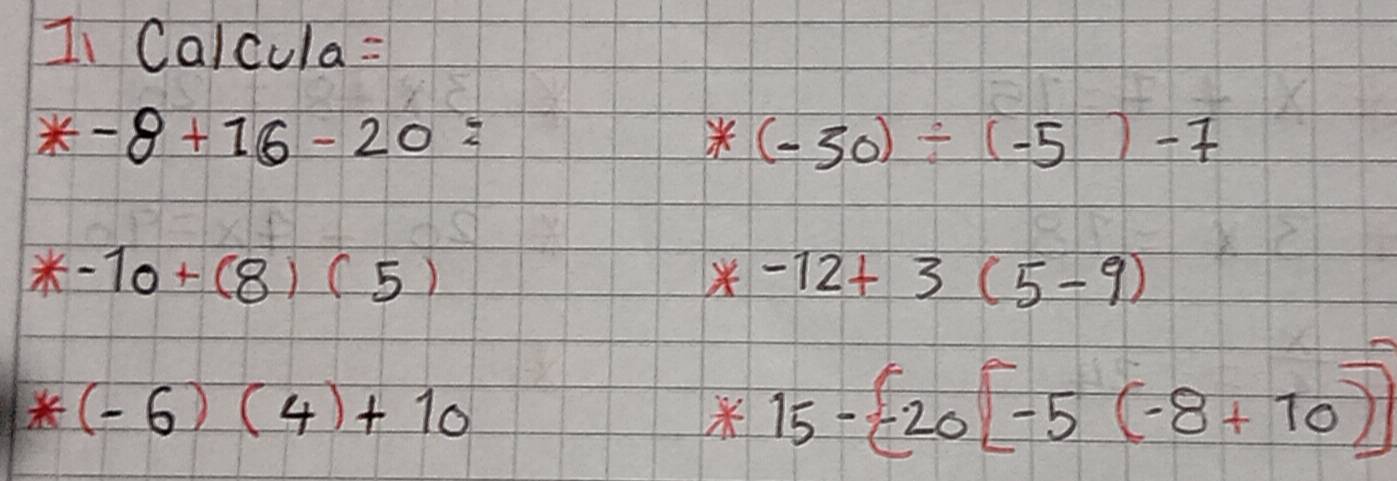 1. Calcula=
* -8 + 16 - 20 =
* (-30) ÷ (-5) - 7
* -10 + (8) (5)
* -12 + 3 (5 - 9)
* (-6) (4) + 10
* 15 - {-20 [-5 (-8 + 10)]}